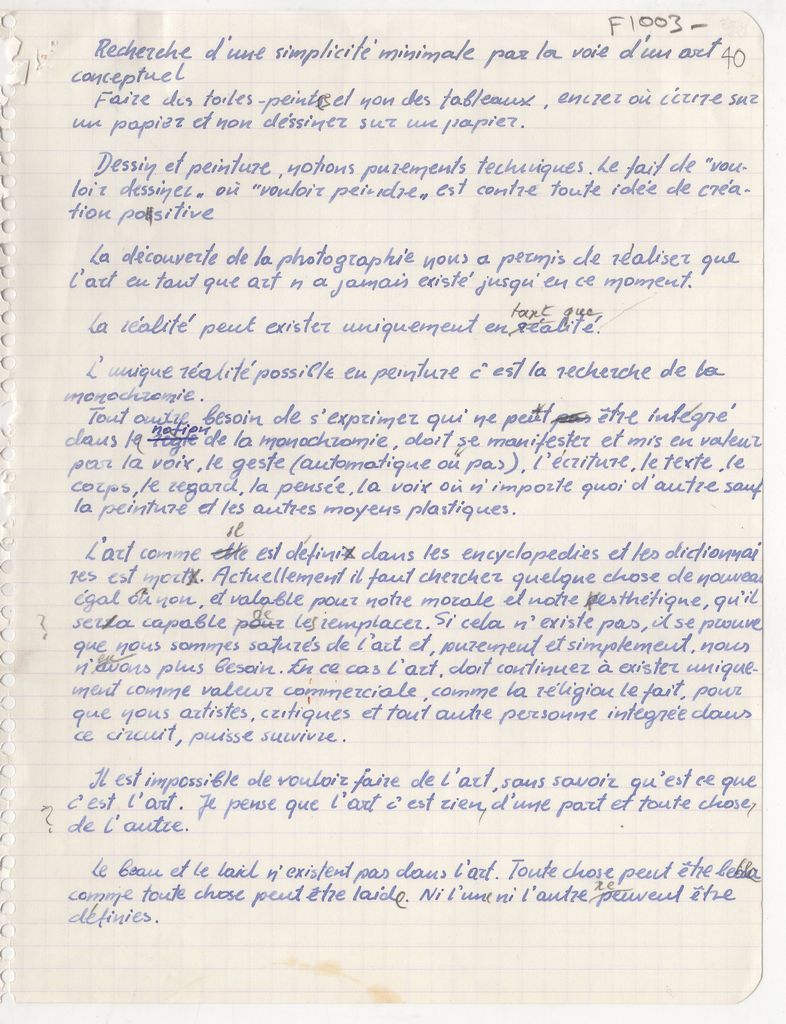 F1003-
40
Recherche d'une simplicité minimale par la voie d'un art
conceptuel
Faire des toiles-peintes et non des tableaux, encrer où écrire sur
un papier et non déssiner sur un papier.
Dessin et peinture, notions purements techniques. Le fait de "vou-
loir dessiner" où "vouloir peindre" est contre toute idée de créa-
tion positive
La découverte de la photographie nous a permis de réaliser que
l'art en tant que art n'a jamais existé jusqu'en ce moment.
tant que
La réalité peut exister uniquement en réalité.
L'unique réalité possible en peinture c'est la recherche de la
monochromie.
Tout autre besoin de s'exprimer qui ne peut pas être intégré
notion
dans la règle de la monochromie, doit se manifester et mis en valeur
par la voix, le geste (automatique où pas), l'écriture, le texte, le
corps, le regard, la pensée, la voix où n'importe quoi d'autre sauf
la peinture et les autres moyens plastiques.
il
L'art comme elle est défini dans les encyclopedies et les dictionnai
res est mort. Actuellement il faut chercher quelque chose de nouveau
égal où non, et valable pour notre morale et notre esthétique, qu'il
de
? sera capable pour les remplacer. Si cela n'existe pas, il se prouve
que nous sommes saturés de l'art et, purement et simplement, nous
en
n'avons plus besoin. En ce cas l'art, doit continuer à exister unique-
ment comme valeur commerciale, comme la réligion le fait, pour
que nous artistes, critiques et tout autre personne intégrée dans
ce circuit, puisse survivre.
Il est impossible de vouloir faire de l'art, sans savoir qu'est ce que
c'est l'art. Je pense que l'art c'est rien, d'une part et toute chose,
? de l'autre.
Le beau et le laid n'existent pas dans l'art. Toute chose peut être belle
comme toute chose peut être laide. Ni l'une ni l'autre peuvent être
définies.